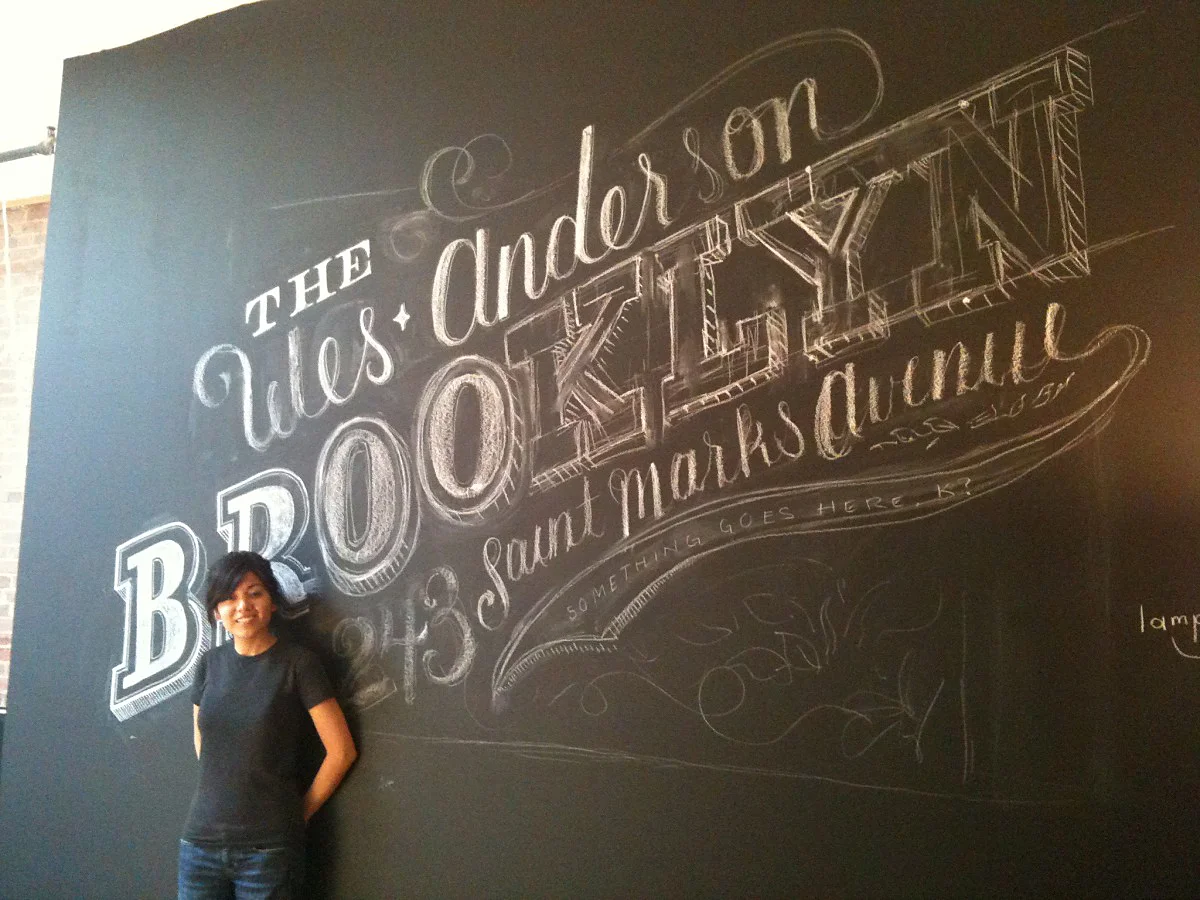 THE
Wes Anderson
BROOKLYN
243 Saint Marks Avenue
SOMETHING GOES HERE. K?
lamp